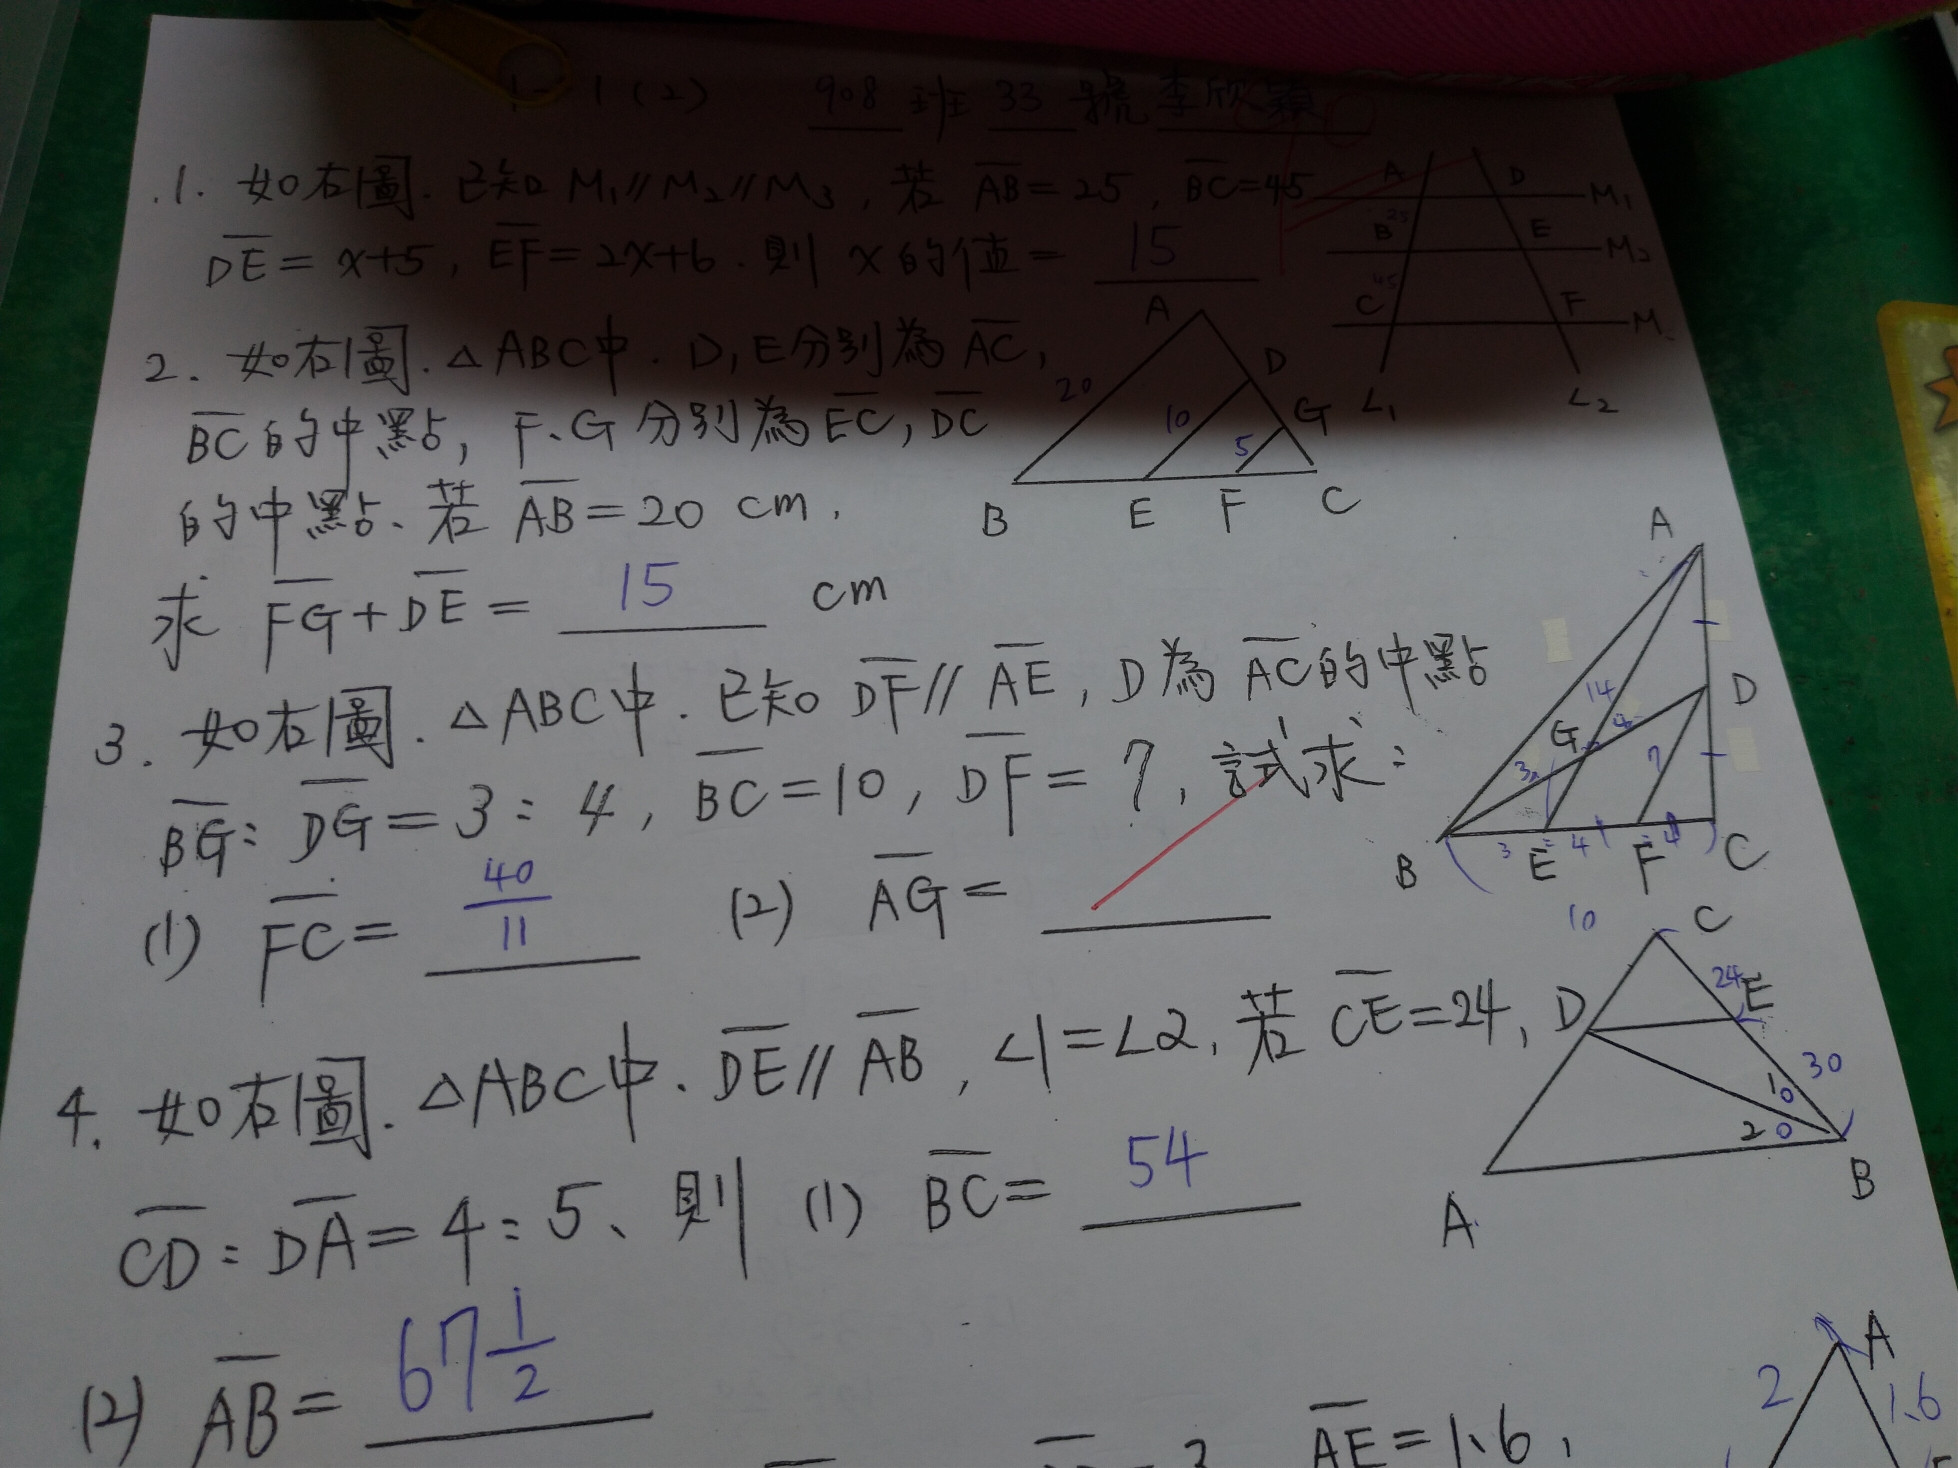 1-1(2) 908 班 33 號 李欣穎
1. 如右圖. 已知 M₁//M₂//M₃, 若 AB=25, BC=45
DE=x+5, EF=2x+6. 則 x的值= 15
A D M₁
B 25 E M₂
C 45 F M
L₁ L₂
2. 如右圖. △ABC中. D,E分別為AC,
BC的中點, F、G分別為EC, DC
的中點、若 AB=20 cm.
求 FG+DE= 15 cm
A
20 D
10 G
5
B E F C
3. 如右圖. △ABC中. 已知 DF//AE, D為AC的中點
BG:DG=3:4, BC=10, DF=7, 試求:
(1) FC= 40/11 (2) AG=
A
14 D
G 4
3 7
B 3 E 4 F 4 C
10
4. 如右圖. △ABC中. DE//AB, ∠1=∠2. 若 CE=24,
CD:DA=4:5、則 (1) BC= 54
(2) AB= 67 1/2
C
24
D E
30
1
2
A B
AE=1.6,
A
2 1.6